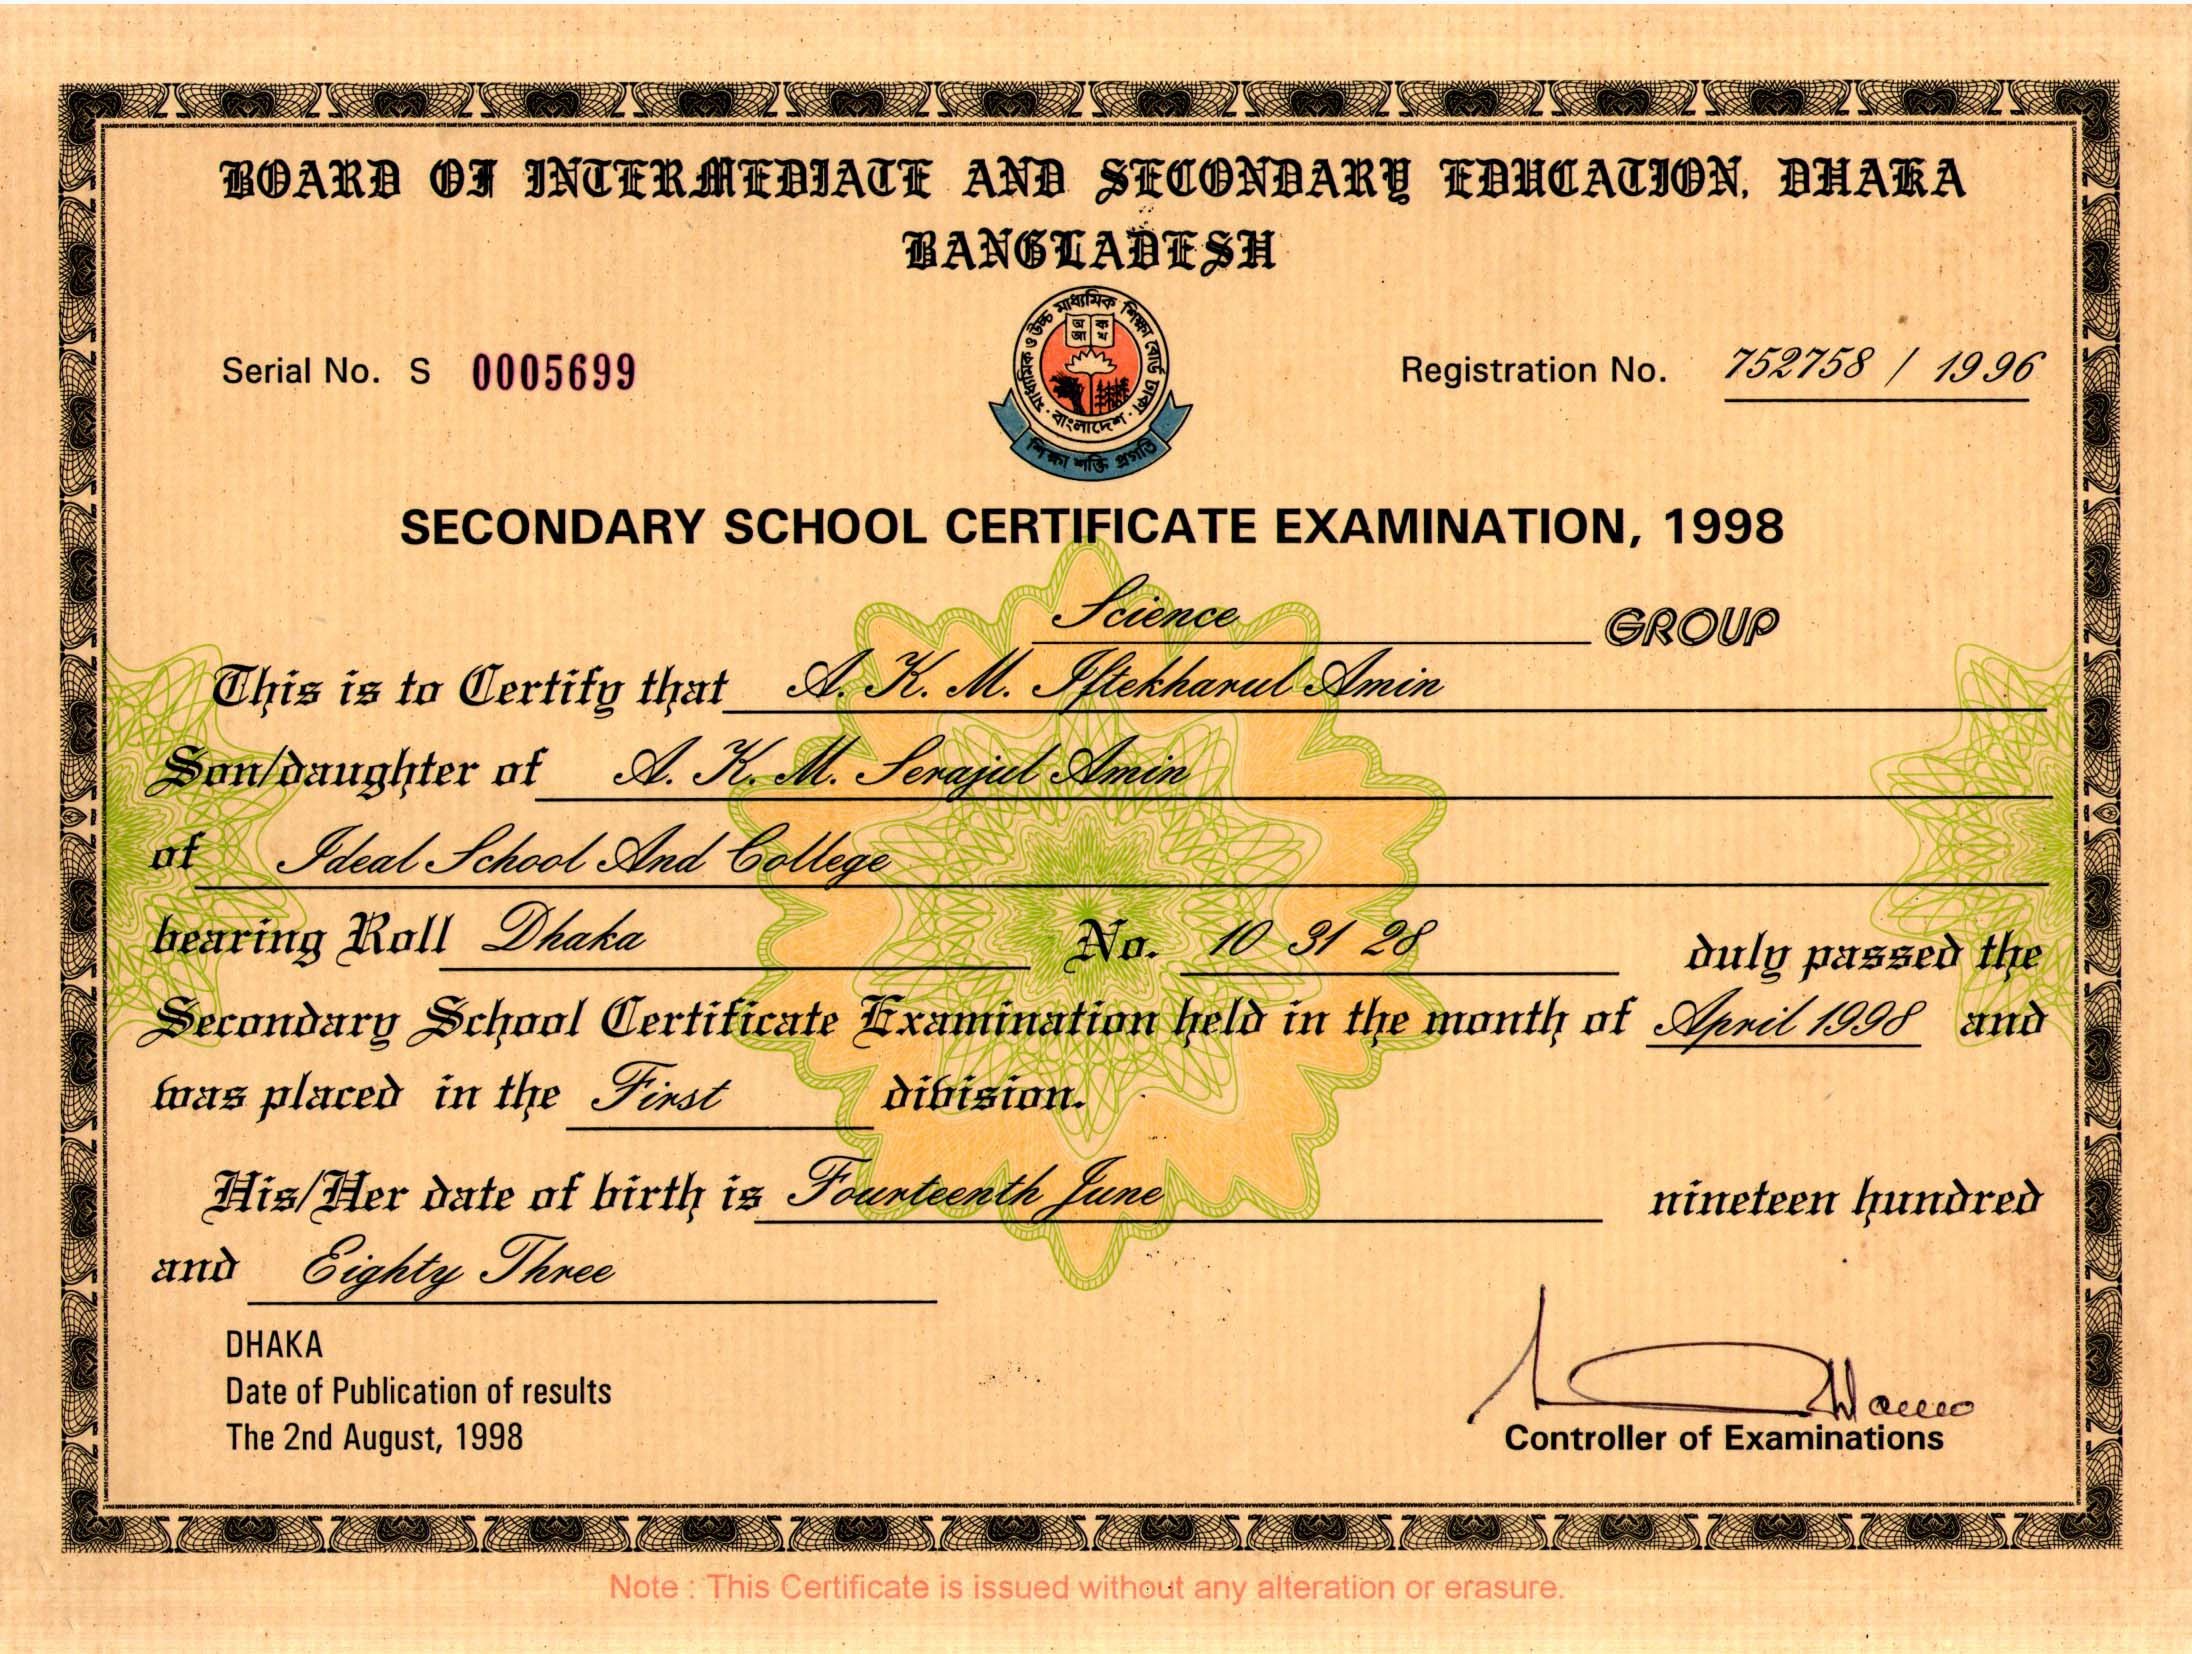 BOARD OF INTERMEDIATE AND SECONDARY EDUCATION, DHAKA
BANGLADESH
মাধ্যমিক ও উচ্চ মাধ্যমিক শিক্ষা বোর্ড ঢাকা
অ ক
আ খ
· বাংলাদেশ ·
শিক্ষা শক্তি প্রগতি
Serial No. S 0005699
Registration No. 752758 / 1996
SECONDARY SCHOOL CERTIFICATE EXAMINATION, 1998
Science GROUP
This is to Certify that A. K. M. Iftekharul Amin
Son/daughter of A. K. M. Serajul Amin
of Ideal School And College
bearing Roll Dhaka No. 10 31 28 duly passed the
Secondary School Certificate Examination held in the month of April 1998 and
was placed in the First division.
His/Her date of birth is Fourteenth June nineteen hundred
and Eighty Three
DHAKA
Date of Publication of results
The 2nd August, 1998
Controller of Examinations
Note : This Certificate is issued without any alteration or erasure.